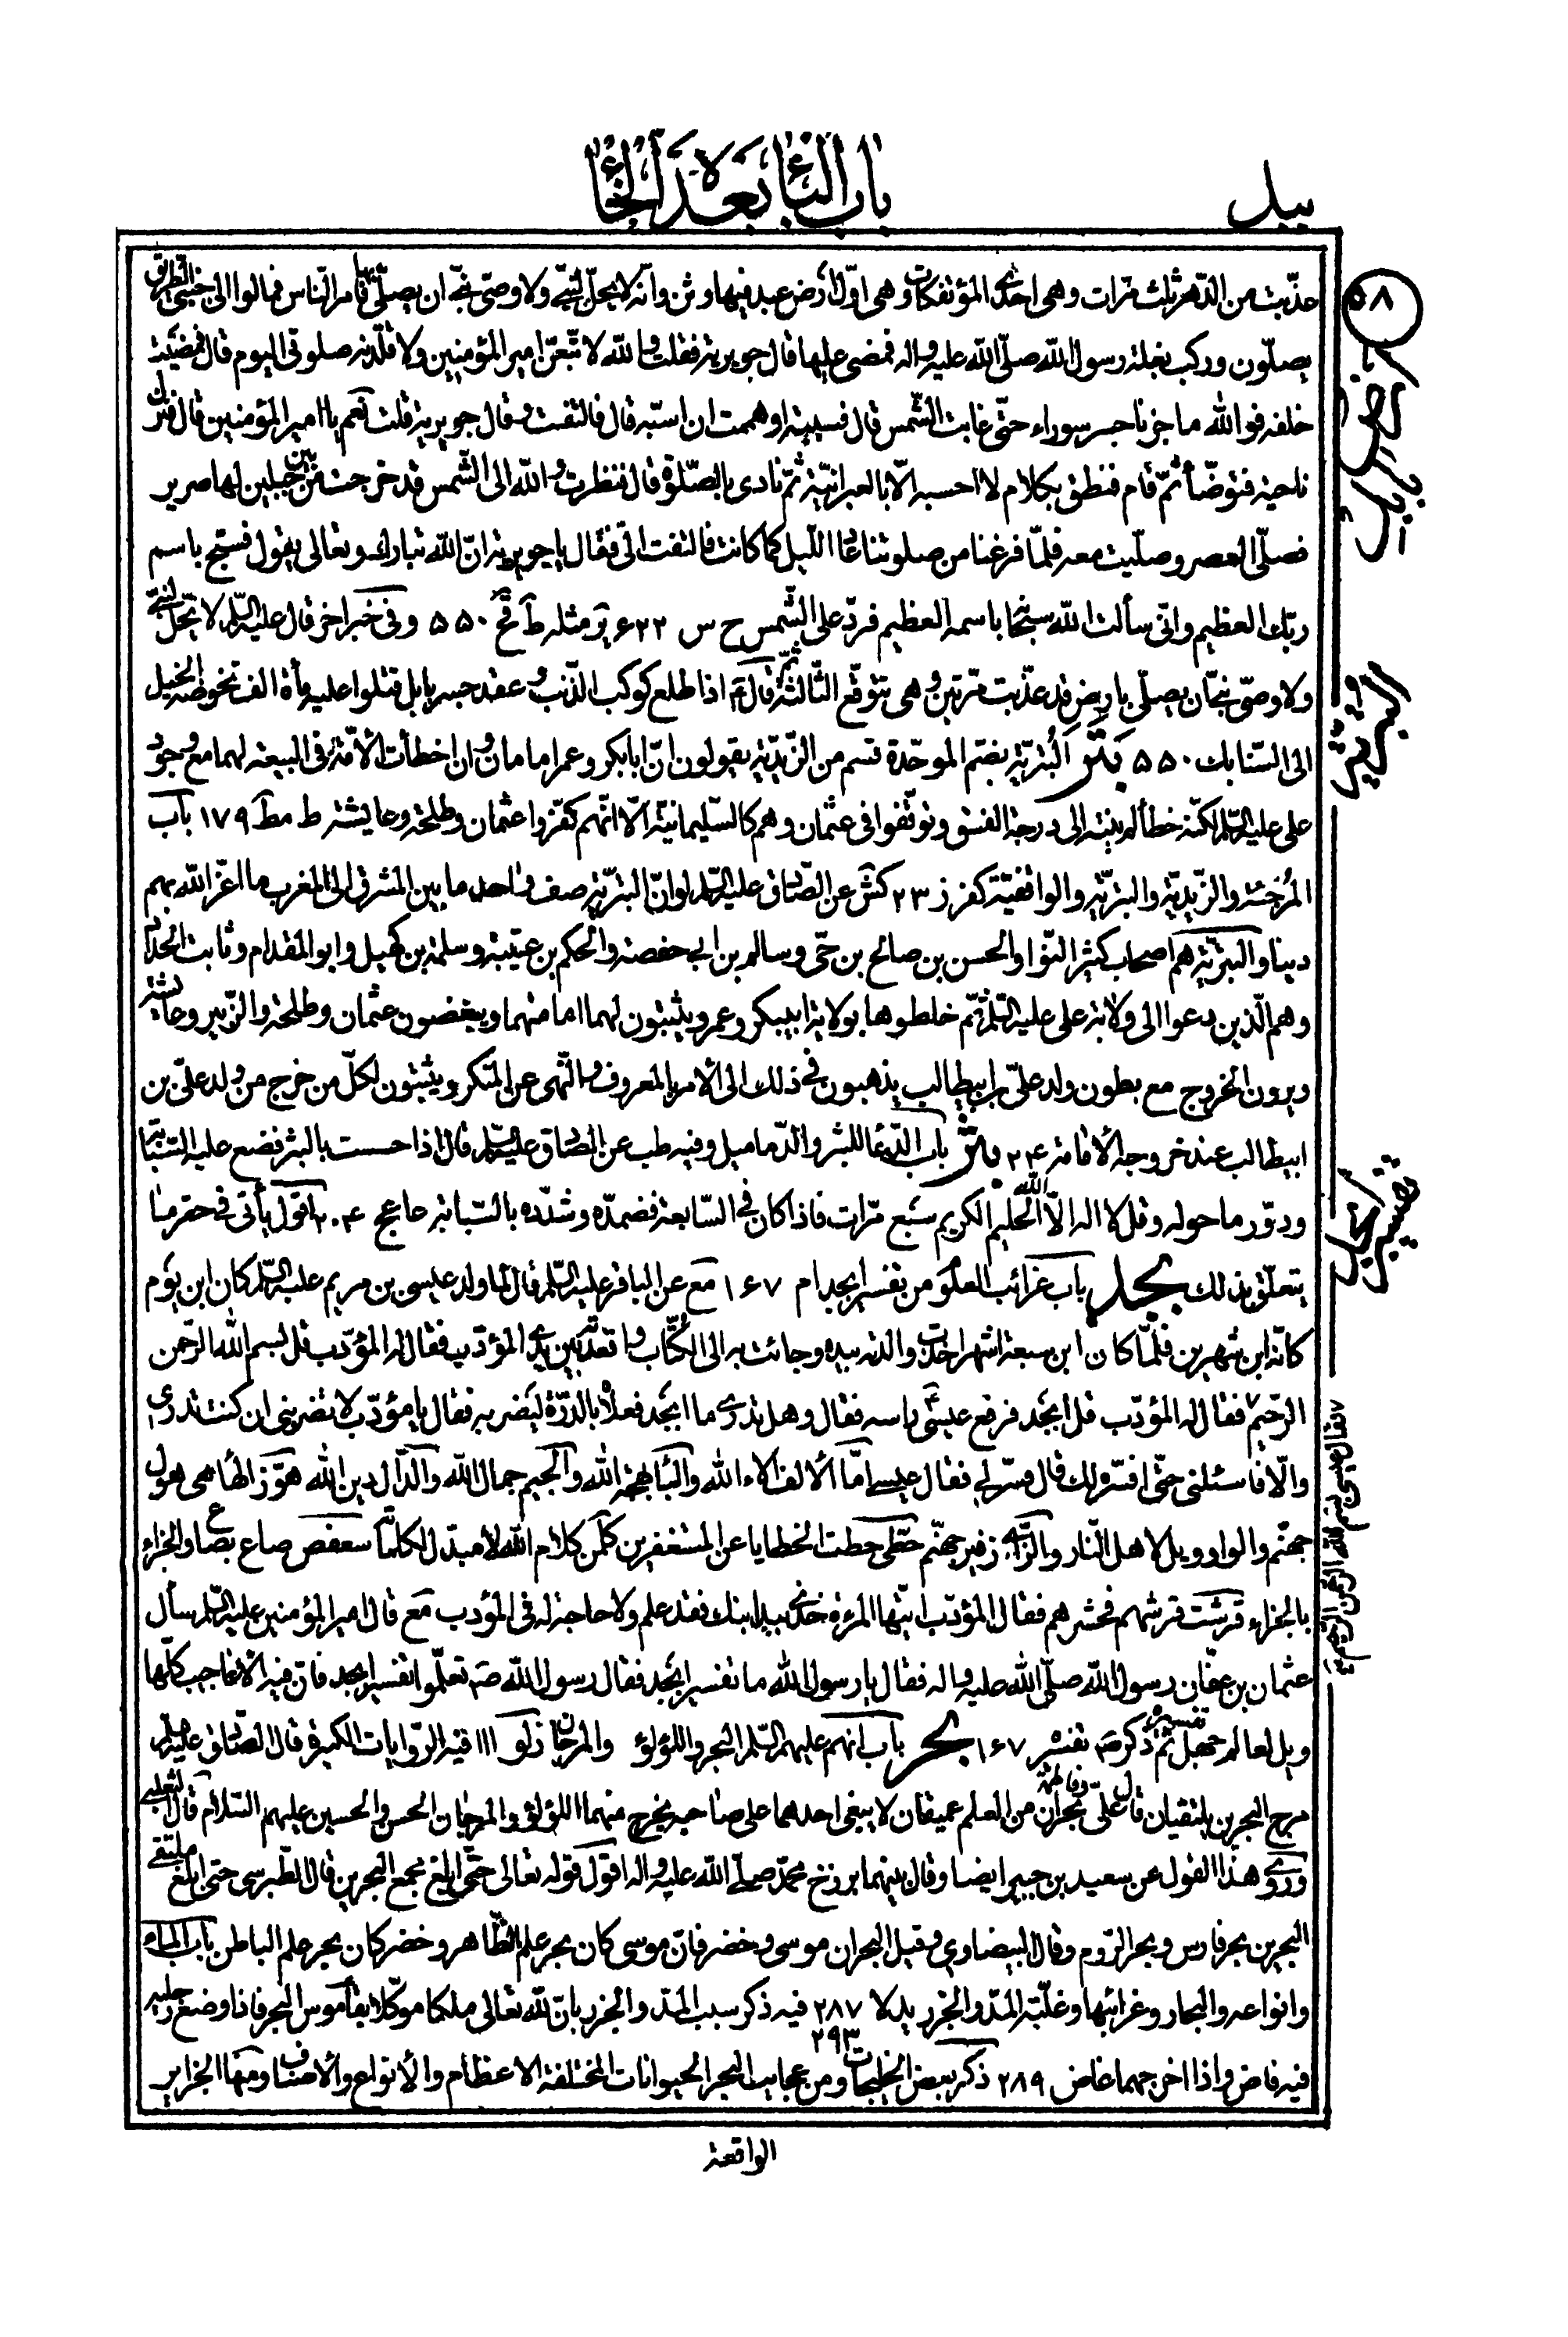 بيل
باب التاء بعده الخاء
٥٨
عذّبت من الدّهر ثلث مرّات وهى احدى المؤتفكات وهى اوّل ارض عبد فيها وثن وانّه لا يحلّ لنبيّ ولا وصيّ نبيّ ان يصلّى بها فامر النّاس فمالوا الى جنبى الطريق
يصلّون وركب بغلة رسول الله صلّى الله عليه واله فمضى عليها قال جويرية فقلت والله لا تّبعنّ امير المؤمنين ولا قلّدنه صلوتى اليوم قال فمضيت
خلفه فو الله ما جزنا جسر سوراء حتّى غابت الشّمس قال فسببته او هممت ان اسبّه قال فالتفت وقال جويرية قلت نعم يا امير المؤمنين قال فنزل
ناحية فتوضّأ ثمّ قام فنطق بكلام لا احسبه الّا بالعبرانيّة ثمّ نادى بالصّلوة قال فنظرت والله الى الشّمس قد خرجت من بين جبلين لها صرير
فصلّى العصر وصلّيت معه فلمّا فرغنا من صلوتنا عاد اللّيل كما كانت فالتفت الىّ فقال يا جويرية انّ الله تبارك وتعالى يقول فسبّح باسم
ربّك العظيم وانّى سألت الله سبحانه باسمه العظيم فردّ علىّ الشّمس ح س ٦٢٢ ير مثله ط قح ٥٥٠ وفى خبر اخر قال عليه السّلم لا يحلّ لنبيّ
ولا وصىّ نبىّ ان يصلّى بارض قد عذّبت مرّتين وهى تتوقّع الثّالثة ثمّ قال اذا طلع كوكب الذّنب وعقد جسر بابل قتلوا عليه مأة الف تخوضه الخيل
الى السّنابك ٥٥٠ بتر البُتريّة بضمّ الموحّدة قسم من الزّيديّة يقولون انّ ابا بكر وعمر امامان وان اخطأت الأمّة فى البيعة لهما مع وجود
على عليه السّلم لكنّه خطأ لم ينته الى درجة الفسق وتوقّفوا فى عثمان وهم كالسّليمانيّة الّا انّهم كفّروا عثمان وطلحة وعايشة ط مط ١٧٩ باب
المُرجئة والزّيديّة والبتريّة والواقفيّة كفر ز ٢٣ كش عن الصّادق عليه السّلم لو انّ البتريّة صف واحد ما بين المشرق الى المغرب ما اعزّ الله بهم
دينا والبتريّة هم اصحاب كثير النّوا والحسن بن صالح بن حىّ وسالم بن ابى حفصة والحكم بن عتيبة وسلمة بن كهيل وابو المقدام وثابت الحدّاد
وهم الّذين دعوا الى ولاية على عليه السّلم ثمّ خلطوها بولاية ابيبكر وعمر ويثبتون لهما امامتهما ويبغضون عثمان وطلحة والزّبير وعايشة
ويرون الخروج مع بطون ولد علىّ بن ابيطالب يذهبون فى ذلك الى الأمر بالمعروف والنّهى عن المنكر ويثبتون لكلّ من خرج من ولد علىّ بن
ابيطالب عند خروجه الأمامة ٢٤ بثر باب الدّعاء للبثر والدّماميل وفيه طب عن الصّادق عليه السّلم قال اذا حسست بالبثر فضع عليه السّبّابة
ودوّر ما حوله وقل لا اله الّا الله الحليم الكريم سبع مرّات فاذا كان فى السّابعة فضمّده وشدّده بالسّبابة حا عج ٢٠٤ اقول يأتى فى حقر ما
يتعلّق بذلك بجد باب غرائب العلوم من تفسير ابجد ام ١٦٧ مع عن الباقر عليه السّلم قال لمّا ولد عيسى بن مريم عليه السّلم كان ابن يوم
كانّه ابن شهرين فلمّا كان ابن سبعة اشهر اخذت والدته بيده وجائت به الى الكُتّاب واقعدته بين يدى المؤدّب فقال له المؤدّب قل بسم الله الرّحمن
الرّحيم فقال له المؤدّب قل ابجد فرفع عيسى راسه فقال وهل تدرى ما ابجد فعلاه بالدّرّة ليضربه فقال يا مؤدّب لا تضربنى ان كنت تدرى
والّا فاسئلنى حتّى افسّره لك قال فسّر لى فقال عيسى امّا الألف الاء الله والباء بهجة الله والجيم جمال الله والدّال دين الله هوّز الهاء هى هول
جهنّم والواو ويل لاهل النّار والزّاء زفير جهنّم حطّى حطت الخطايا عن المستغفرين كلمن كلام الله لا مبدّل لكلماته سعفص صاع بصاع والجزاء
بالجزاء قرشت قرشهم فحشرهم فقال المؤدّب ايّتها المرءة خذى بيد ابنك فقد علم ولا حاجة له فى المؤدب مع قال امير المؤمنين عليه السّلم سأل
عثمان بن عفّان رسول الله صلّى الله عليه واله فقال يا رسول الله ما تفسير ابجد فقال رسول الله ص تعلّموا تفسير ابجد فانّ فيه الاعاجيب كلّها
ويل لعالم جهل تفسيره ثمّ ذكر ص تفسيره ١٦٧ بحر باب انهم عليهم السّلم البحر واللؤلؤ والمرجان ز لو ١١١ فيه الرّوايات الكثيرة قال الصّادق عليه السّلم
مرج البحرين يلتقيان قال علىّ وفاطمة بحران من العلم عميقان لا يبغى احدهما على صاحبه يخرج منهما اللؤلؤ والمرجان الحسن والحسين عليهم السّلام قال الثعلبى
وروى هذا القول عن سعيد بن جبير ايضا وقال بينهما برزخ محمّد صلّى الله عليه واله اقول قوله تعالى حتّى ابلغ مجمع البحرين قال الطّبرسى حتى ابلغ ملتقى
البحرين بحر فارس وبحر الرّوم وقال البيضاوى وقيل البحران موسى وخضر فانّ موسى كان بحر علم الظّاهر وخضر كان بحر علم الباطن باب الماء
وانواعه والبحار وغرائبها وعلّة المدّ والجزر يد لا ٢٨٧ فيه ذكر سبب المدّ والجزر بانّ لله تعالى ملكا موكّلا بقاموس البحر فاذا وضع رجليه
فيه فاض واذا اخرجهما غاض ٢٨٩ ذكر بعض الخليجات ٢٩٣ ومن عجايب البحر الحيوانات المختلفة الاعظام والأنواع والأصناف ومنها الجزاير
البتريّة
تفسير ابجد
فقال عيسى بسم الله الرحمن الرحيم
الواقعة